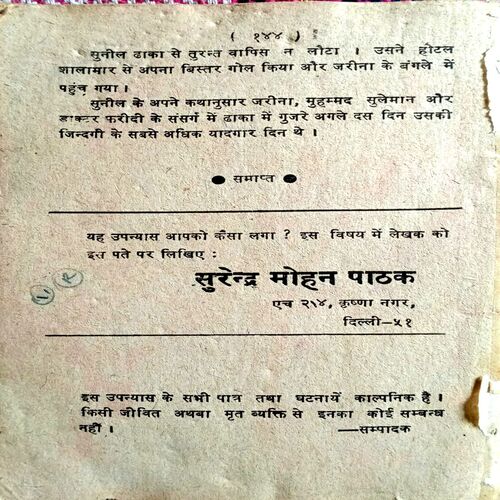 ( १४४ )
सुनील ढाका से तुरन्त वापिस न लौटा । उसने होटल
शालामार से अपना बिस्तर गोल किया और जरीना के बंगले में
पहुंच गया ।
सुनील के अपने कथानुसार जरीना, मुहम्मद सुलेमान और
डाक्टर फरीदी के संसर्ग में ढाका में गुजरे अगले दस दिन उसकी
जिन्दगी के सबसे अधिक यादगार दिन थे ।
● समाप्त ●
यह उपन्यास आपको कैसा लगा ? इस विषय में लेखक को
इस पते पर लिखिए :
सुरेन्द्र मोहन पाठक
एच २\४, कृष्णा नगर,
दिल्ली—५१
इस उपन्यास के सभी पात्र तथा घटनायें काल्पनिक हैं ।
किसी जीवित अथवा मृत व्यक्ति से इनका कोई सम्बन्ध
नहीं ।
—सम्पादक